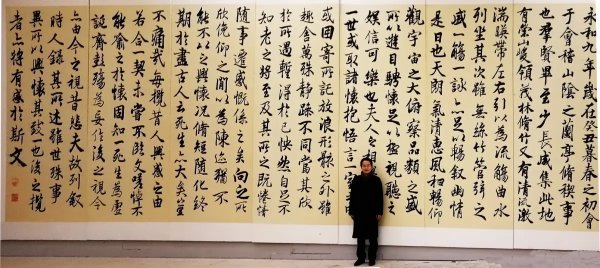 永和九年歲在癸丑暮春之初會
于會稽山陰之蘭亭脩稧事
也群賢畢至少長咸集此地
有崇山峻領茂林脩竹又有清流激
湍暎帶左右引以為流觴曲水
列坐其次雖無絲竹管弦之
盛一觴一詠亦足以暢敘幽情
是日也天朗氣清惠風和暢仰
觀宇宙之大俯察品類之盛
所以遊目騁懷足以極視聽之
娛信可樂也夫人之
一世或取諸懷抱悟言一室之
或因寄所託放浪形骸之外雖
趣舍萬殊靜躁不同當其欣
於所遇暫得於己怏然自足不
知老之將至及其所之既惓情
隨事遷感慨係之矣向之所
欣俛仰之閒以為陳迹猶不
能不以之興懷況脩短隨化終
期於盡古人云死生亦大矣豈
不痛哉每攬昔人興感之由
若合一契未嘗不臨文嗟悼不
能喻之於懷固知一死生為虛
誕齊彭殤為妄作後之視今
亦由今之視昔悲夫故列敘
時人錄其所述雖世殊事
異所以興懷其致一也後之攬
者亦將有感於斯文